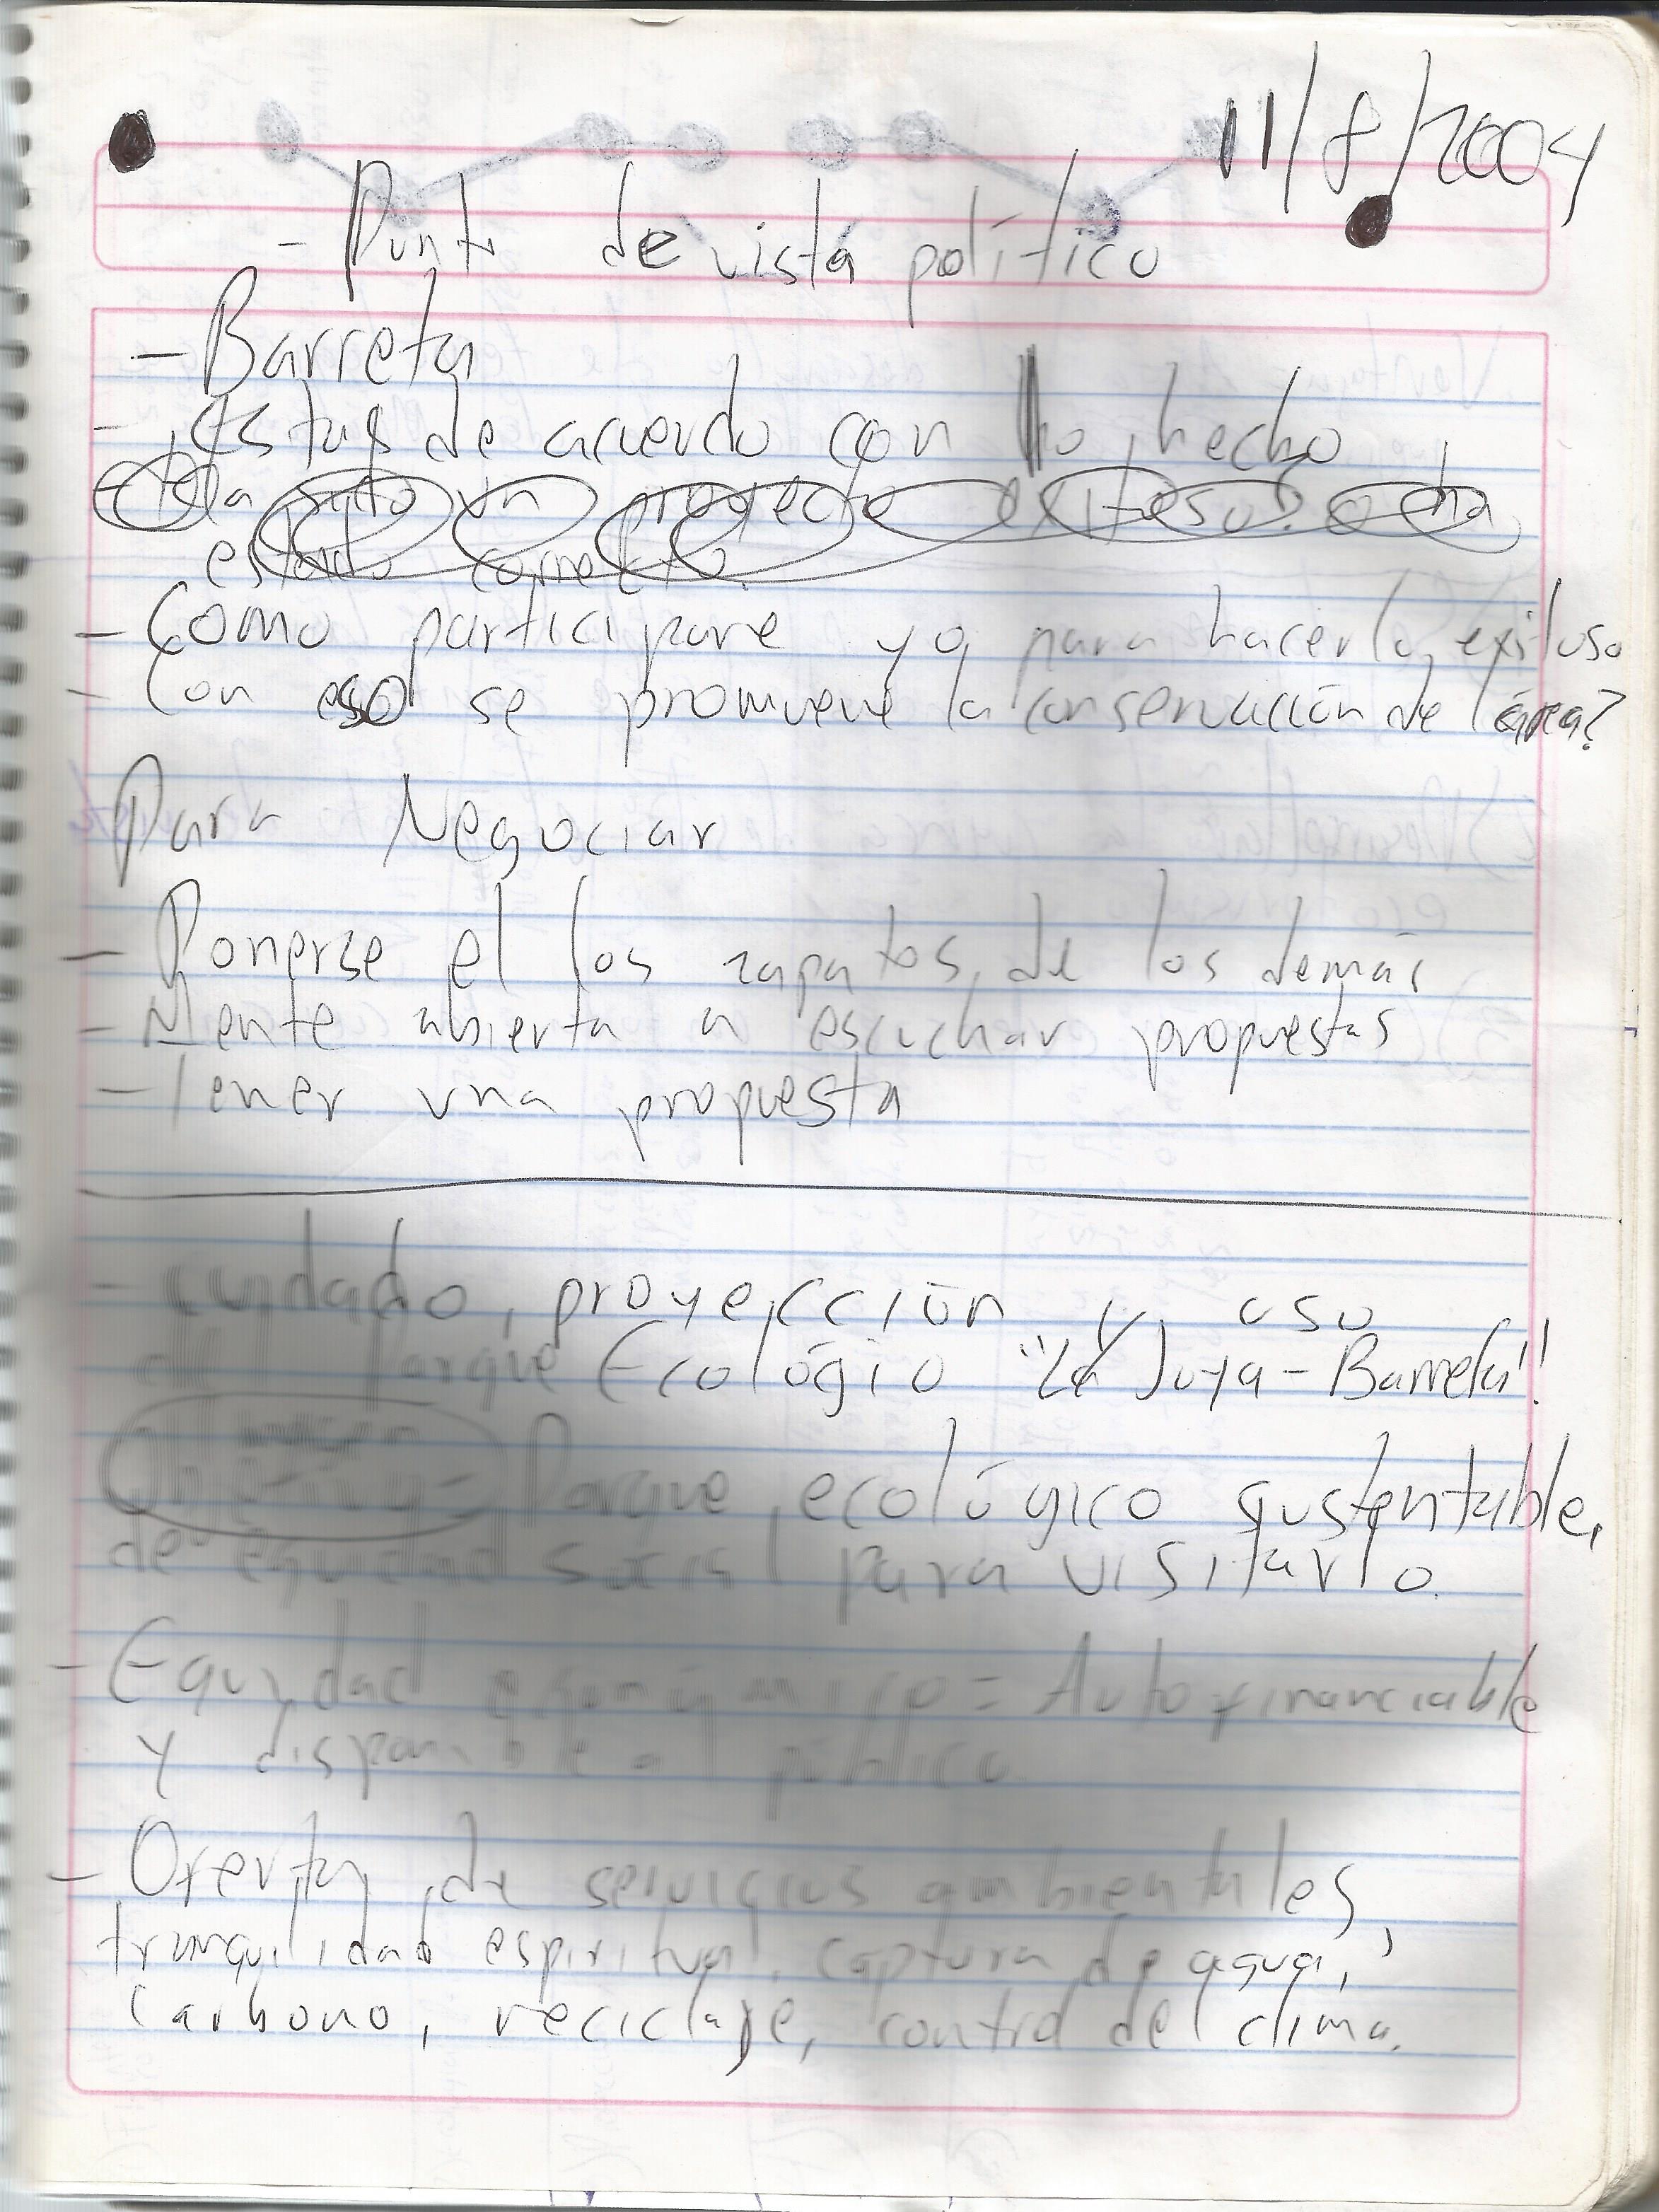 11/8/2004
- Punto de vista político
- Barreta
- Estas de acuerdo con lo hecho
un proyecto exitoso? o ha
estado correcto.
- Como participare yo, para hacerlo exitoso
- Con eso se promueve la conservación del área?
Para Negociar
- Ponerse el los zapatos de los demás
- Mente abierta a escuchar propuestas
- Tener una propuesta
- cuidado, proyección y uso
del Parque Ecológio "La Joya-Barreta"!
Parque ecológico sustentable,
de equidad social para visitarlo.
- Equidad económico = Autofinanciable
y disponible al público.
- Oferta de servicios ambientales,
tranquilidad espiritual, captura de agua,
Carbono, reciclaje, control del clima.